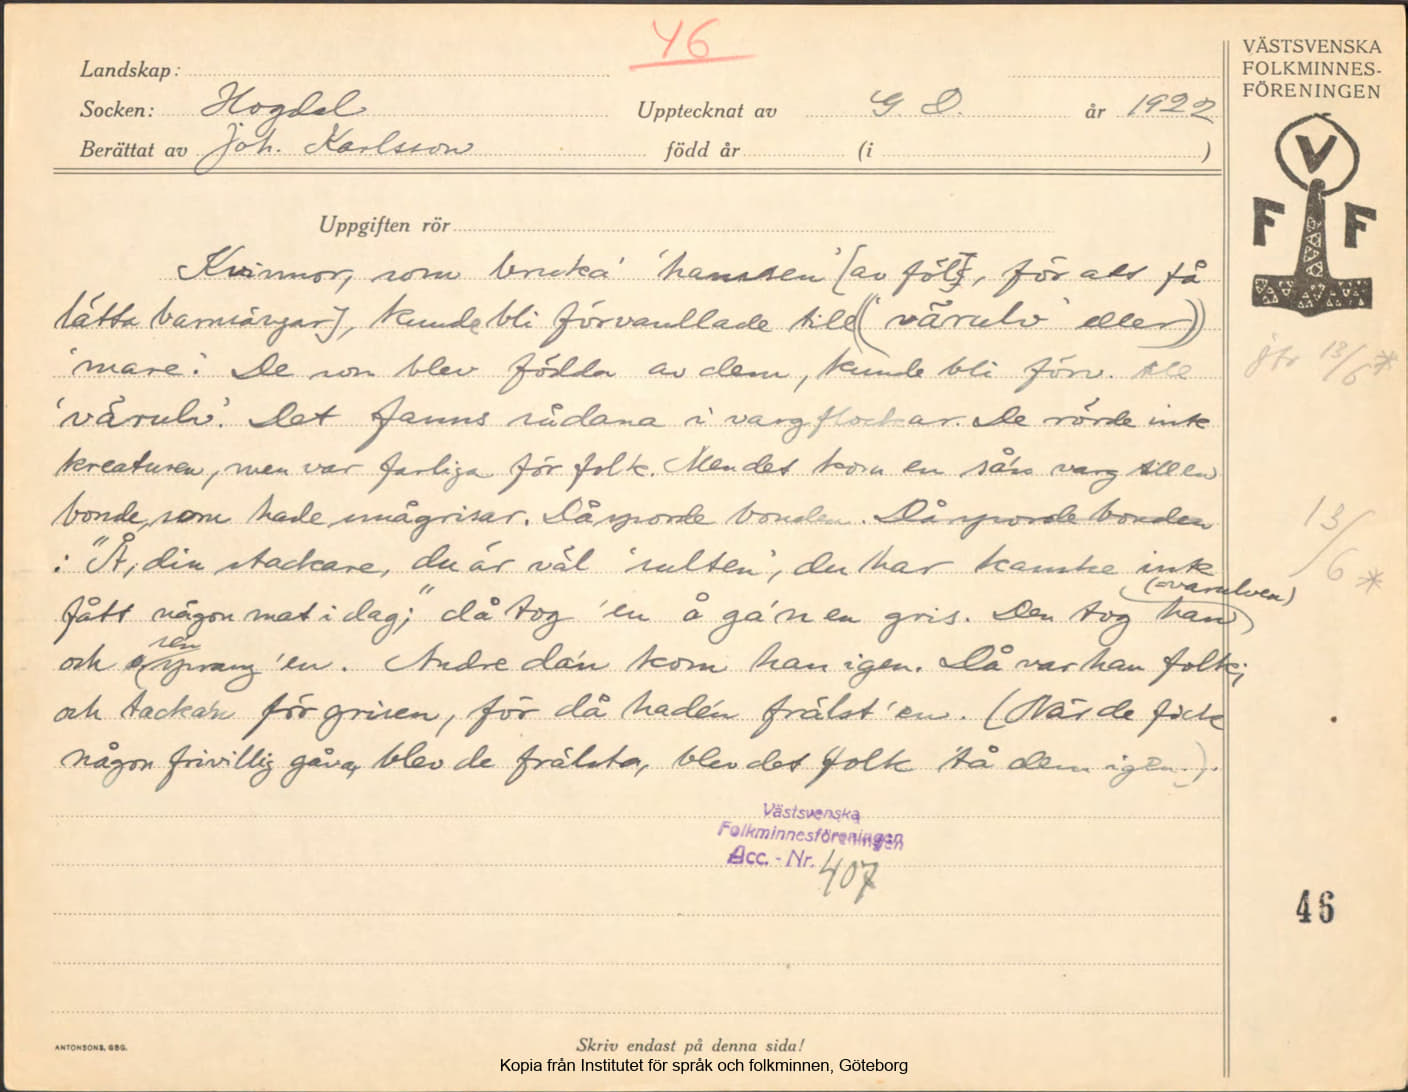 46
VÄSTSVENSKA
FOLKMINNES-
FÖRENINGEN
Landskap:
Socken: Hogdal Upptecknat av G. D. år 1922
Berättat av Joh. Karlsson född år (i )
V
F F
Uppgiften rör
Kvinnor, som bruka' 'hamsen' [av föl], för att få
lätta barnsängar], kunde bli förvanllade till ('värulv' eller)
'mare'. De som blev födda av dem, kunde bli förv. till
'värulv'. Det fanns sådana i vargflockar. De rörde inte
kreaturen, men var farliga för folk. Men det kom en sån varg till en
bonde, som hade smågrisar. Då sporde bonden. Då sporde bonden
: "Å, din stackare, du är väl 'sulten', du har kanske inte
(=varulven)
fått någon mat i dag;" då tog 'en å ga'n en gris. Den tog han
sen
och sprang 'en. Andre da'n kom han igen. Då var han folk;
och tacka'n för grisen, för då hade'n frälst 'en. (När de fick
någon frivillig gåva, blev de frälsta, blev det folk 'tå dem igen.).
jfr 13/6 *
13/6 *
Västsvenska
Folkminnesföreningen
Acc. - Nr. 407
46
ANTONSONS, GBG.
Skriv endast på denna sida!
Kopia från Institutet för språk och folkminnen, Göteborg